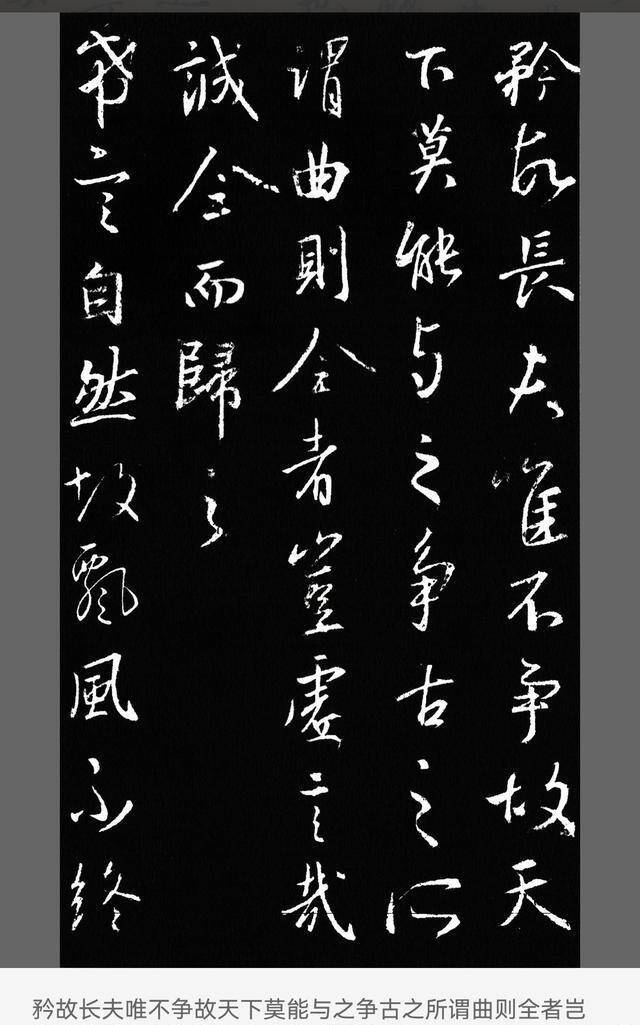 矜故長夫唯不争故天
下莫能与之争古之所
謂曲則全者豈虚言哉
誠全而歸之
希言自然故飄風不終
矜故长夫唯不争故天下莫能与之争古之所谓曲则全者岂